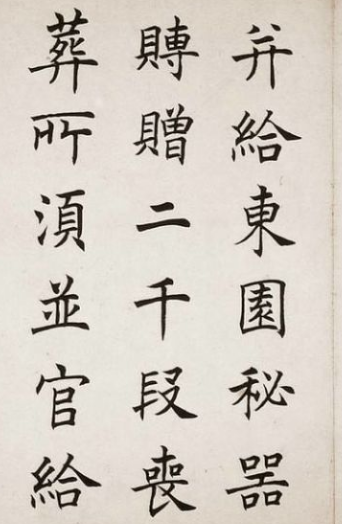 幷給東園秘器
賻贈二千段喪
葬所湏並官給